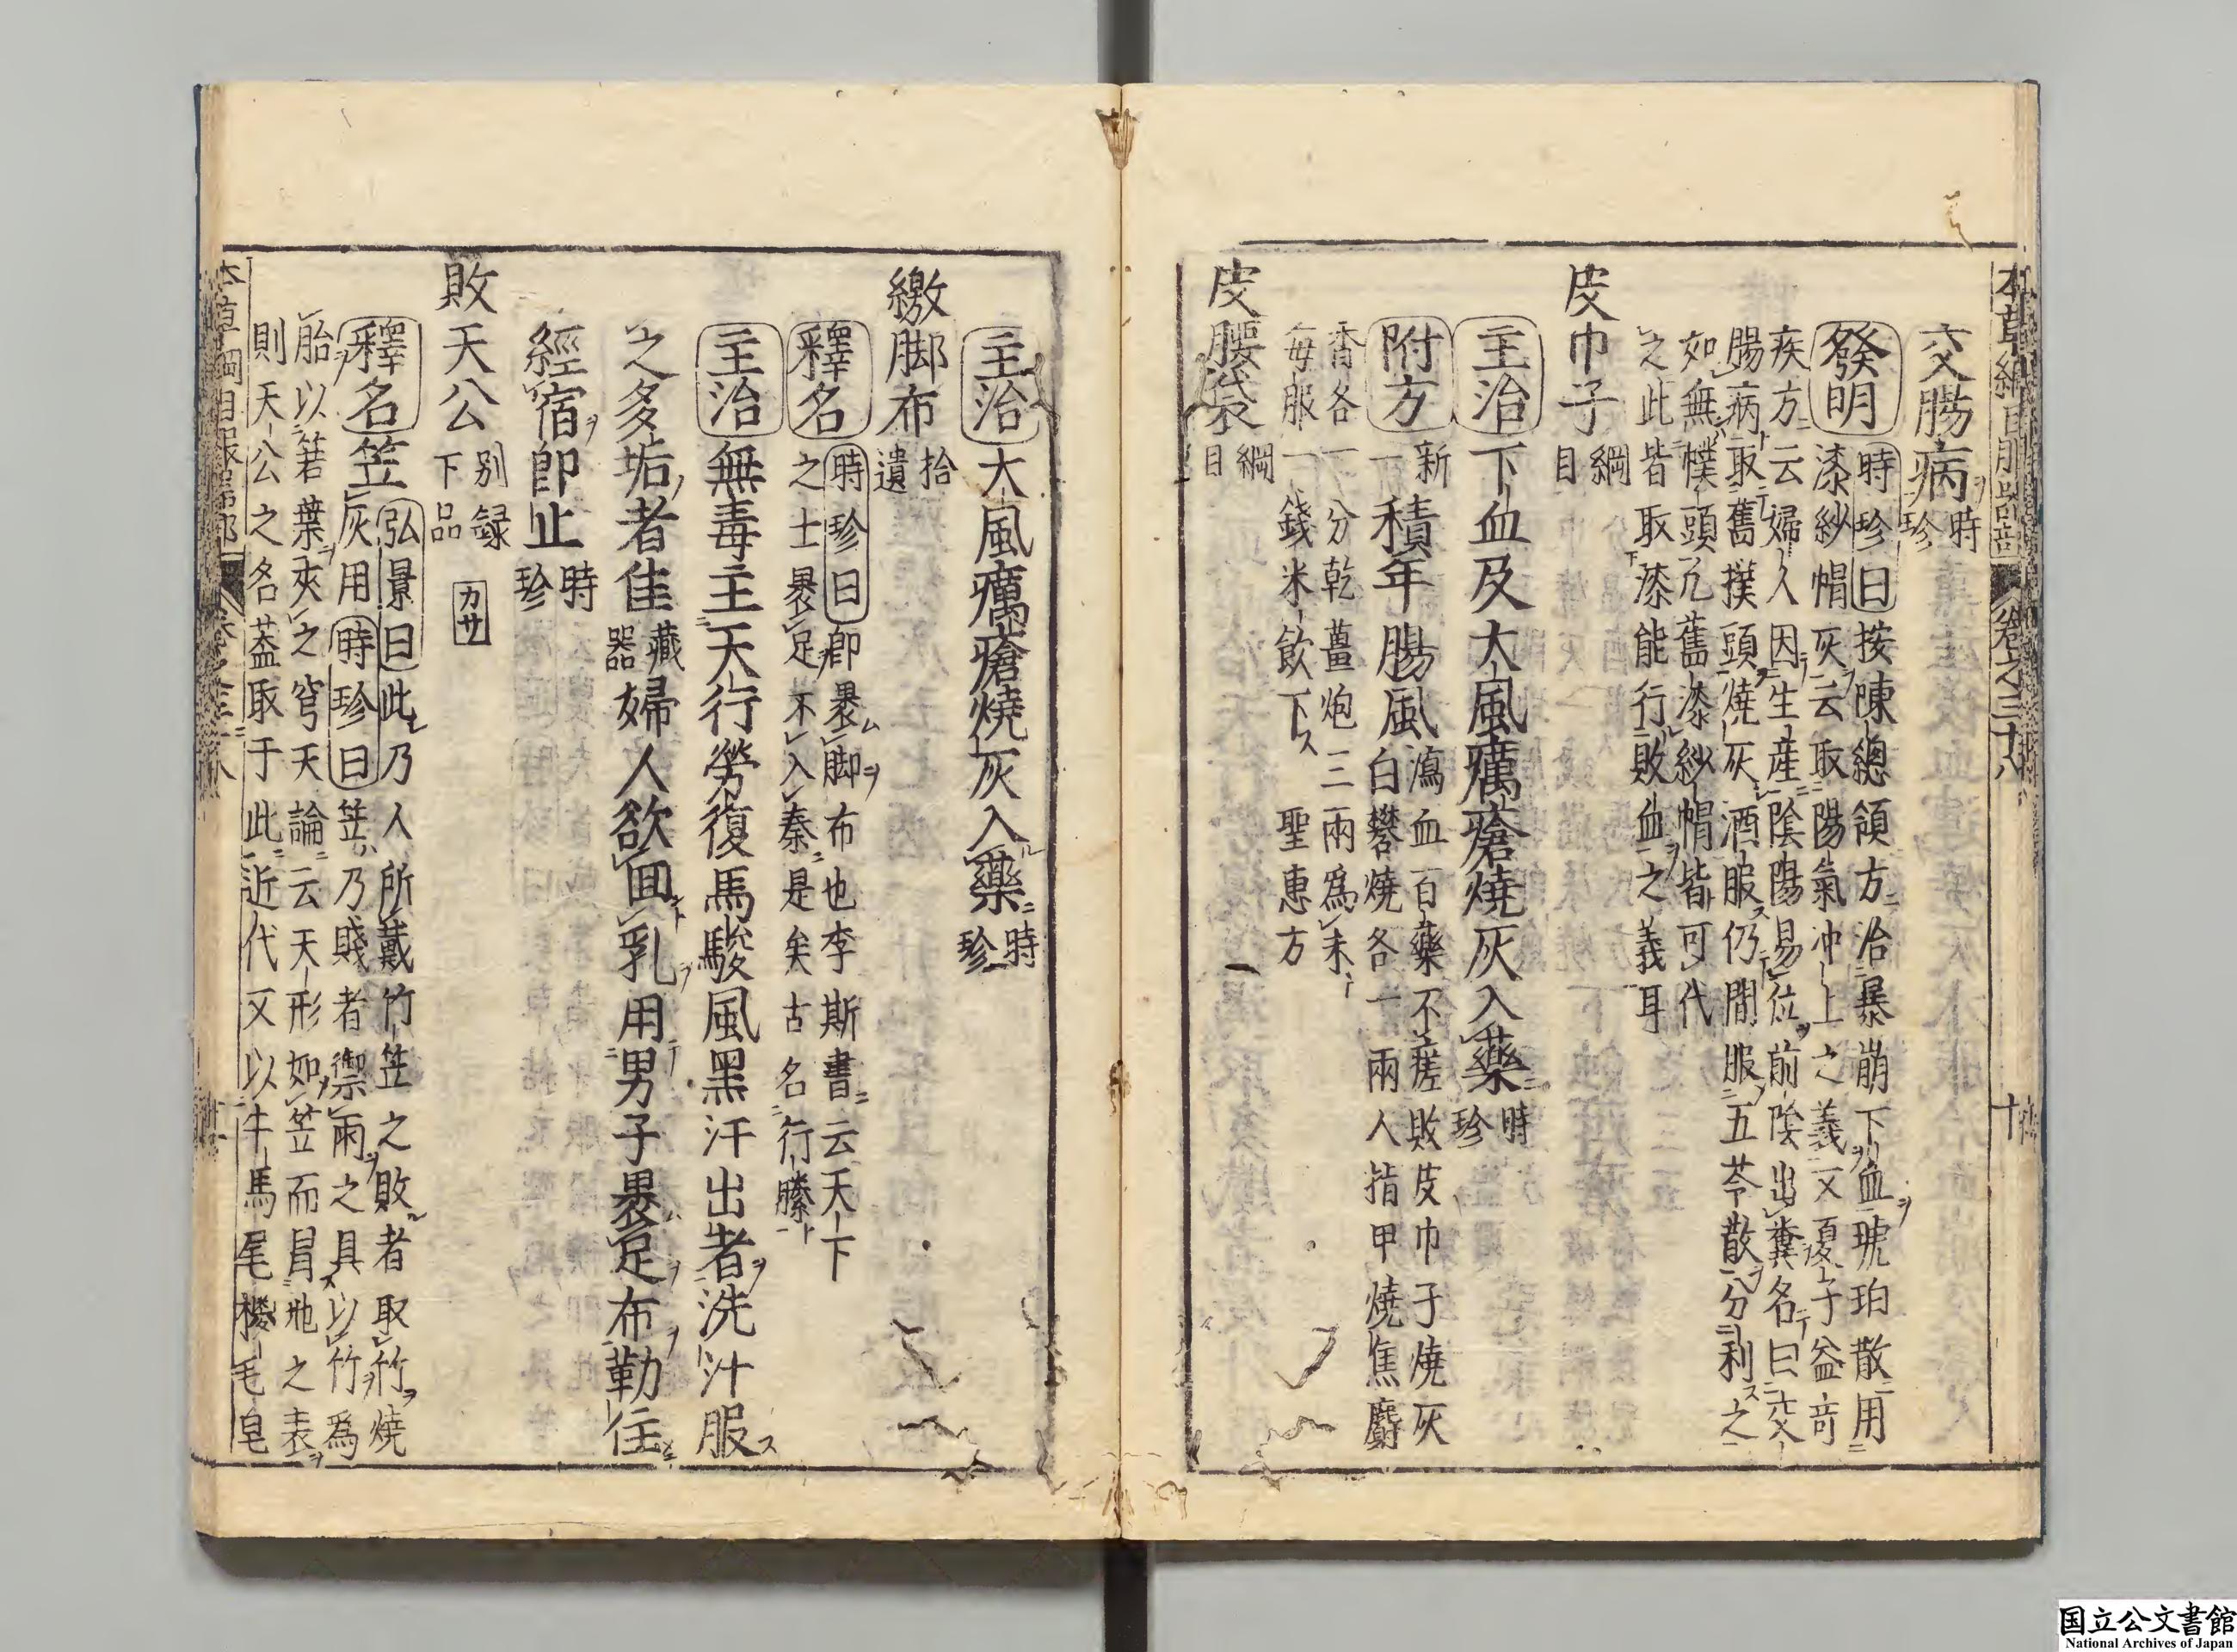 本草綱目服器部 卷之三十八 十
交腸病時珍
發明時珍曰按陳總領方治暴崩下血琥珀散用
漆紗帽灰云取陽氣冲上之義又夏子益奇
疾方云婦人因生産陰陽易位前陰出糞名曰交
腸病取舊撲頭燒灰酒服仍間服五苓散分利之
如無幞頭凡舊漆紗帽皆可代
之此皆取漆能行敗血之義耳
皮巾子綱目
主治下血及大風癘瘡燒灰入藥時珍
附方新一積年腸風瀉血百藥不瘥敗皮巾子燒灰
白礬燒各一兩人指甲燒焦麝
香各一分乾薑炮三兩爲末
每服一錢米飲下 聖惠方
皮腰袋綱目
主治大風癘瘡燒灰入藥時珍
繳脚布拾遺
釋名時珍曰即裹脚布也李斯書云天下
之士裹足不入秦是矣古名行縢
主治無毒主天行勞復馬駿風黑汗出者洗汁服
之多垢者佳藏器婦人欲回乳用男子裹足布勒住
經宿即止時珍
敗天公別録下品 カサ
釋名笠灰用弘景曰此乃人所戴竹笠之敗者取竹燒
時珍曰笠乃賤者禦雨之具以竹爲
胎以箬葉夾之穹天論云天形如笠而冒地之表
則天公之名蓋取于此近代又以牛馬尾櫻毛皂
本草綱目服器部 卷之三十八
国立公文書館
National Archives of Japan